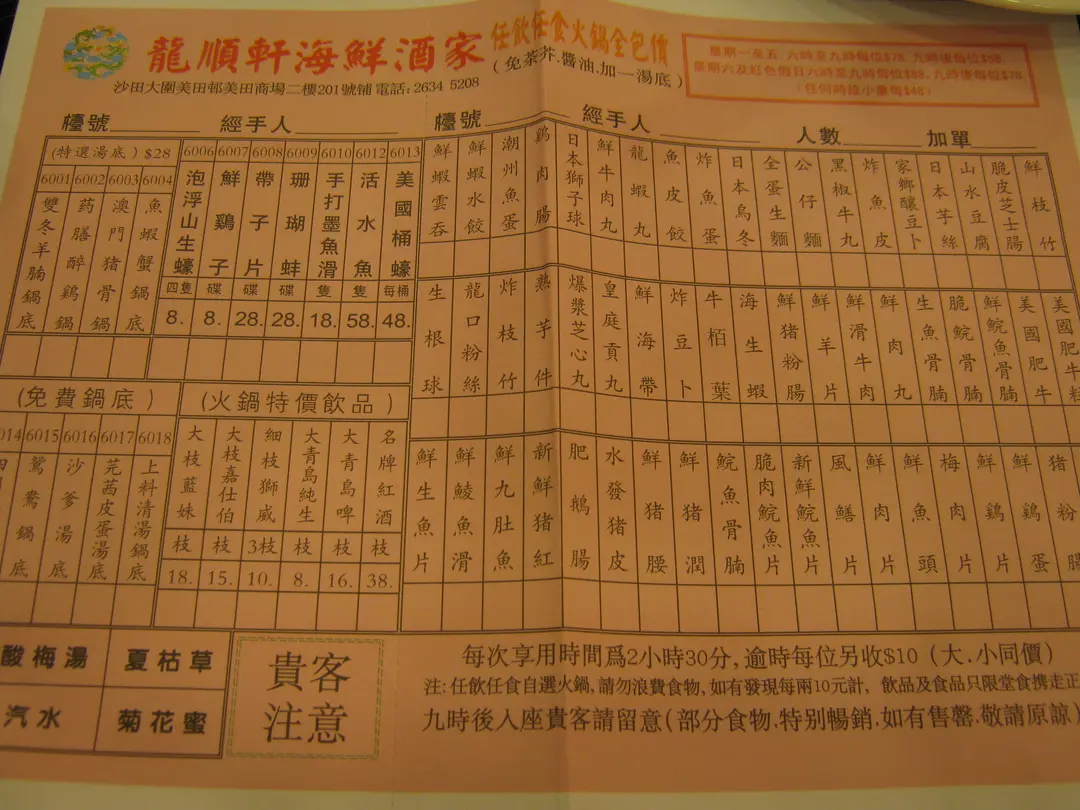 龍順軒海鮮酒家
任飲任食火鍋全包價
(免茶芥.醬油.加一湯底)
沙田大圍美田邨美田商場二樓201號铺 電話:2634 5208
星期一至五 六時至九時每位$78, 九時後每位$68.
星期六及紅色假日六時至九時每位$88, 九時後每位$78
(任何時段小童每$48)
檯號 經手人
檯號 經手人 人數 加單
(特選湯底) $28
6001 雙冬羊腩鍋底
6002 药膳醉鷄鍋
6003 澳門猪骨鍋
6004 魚蝦蟹鍋底
6006 泡浮山生蠔 四隻 8.
6007 鮮鷄子 碟 8.
6008 帶子片 碟 28.
6009 珊瑚蚌 碟 28.
6010 手打墨魚滑 隻 18.
6012 活水魚 隻 58.
6013 美國桶蠔 每桶 48.
鮮蝦雲吞
鮮蝦水餃
潮州魚蛋
鷄肉腸
日本獅子球
鮮牛肉丸
龍蝦丸
魚皮餃
炸魚蛋
日本烏冬
全蛋生麵
公仔麵
黑椒牛丸
炸魚皮
家鄉釀豆卜
日本芋絲
山水豆腐
脆皮芝士腸
鮮枝竹
生根球
龍口粉絲
炸枝竹
熱芋件
爆漿芝心丸
皇庭貢丸
鮮海帶
炸豆卜
牛栢葉
海生蝦
鮮猪粉腸
鮮羊片
鮮滑牛肉
鮮肉丸
生魚骨腩
脆鯇骨腩
鮮鯇魚骨腩
美國肥牛
美國肥牛粒
鮮生魚片
鮮鯪魚滑
鮮九肚魚
新鮮猪紅
肥鵝腸
水發猪皮
鮮猪腰
鮮猪潤
鯇魚骨腩
脆肉鯇魚片
新鮮鯇魚片
風鱔片
鮮肉片
鮮魚頭
梅肉片
鮮鷄片
鮮鷄蛋
猪粉腸
(免費鍋底)
014
6015 鴛鴦鍋底
6016 沙爹湯底
6017 芫茜皮蛋湯底
6018 上料清湯鍋底
(火鍋特價飲品)
大枝藍妹 枝 18.
大枝嘉仕伯 枝 15.
細枝獅威 3枝 10.
大青島純生 枝 8.
大青島啤 枝 16.
名牌紅酒 枝 38.
酸梅湯 夏枯草
汽水 菊花蜜
貴客
注意
每次享用時間爲2小時30分, 逾時每位另收$10 (大.小同價)
注: 任飲任食自選火鍋, 請勿浪費食物, 如有發現每兩10元計, 飲品及食品只限堂食携走正
九時後入座貴客請留意 (部分食物.特别暢銷.如有售罄.敬請原諒)